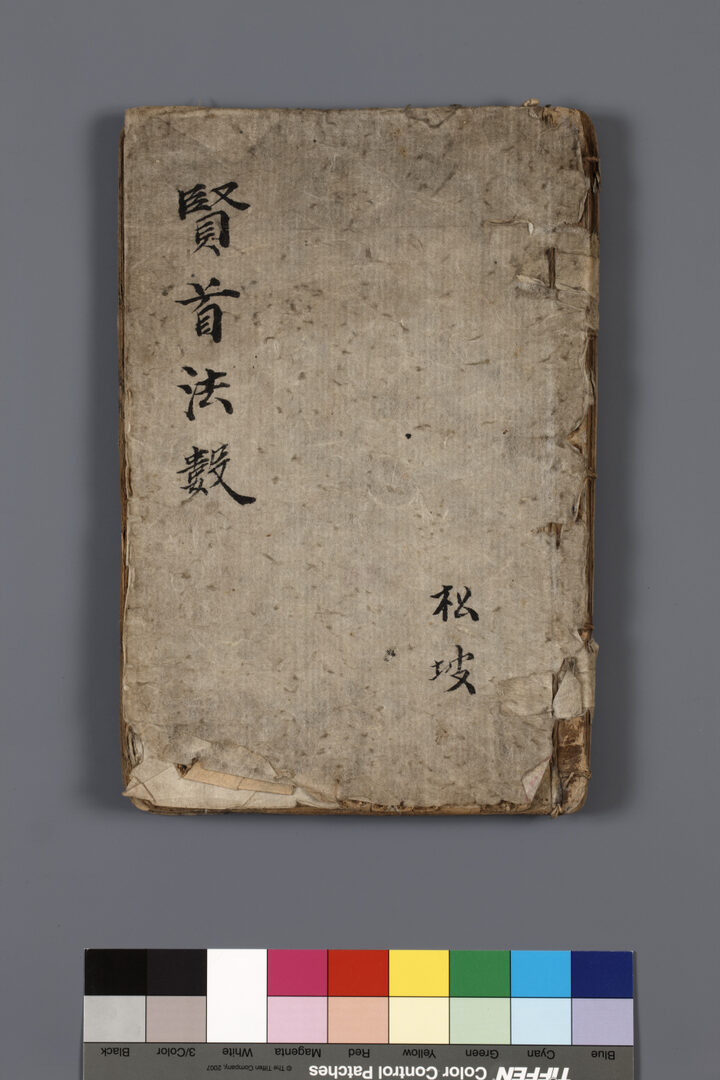 賢首法數
松坡
Blue Cyan Green Yellow Red Magenta White 3/Color Black
TIFFEN Color Control Patches © The Tiffen Company, 2007